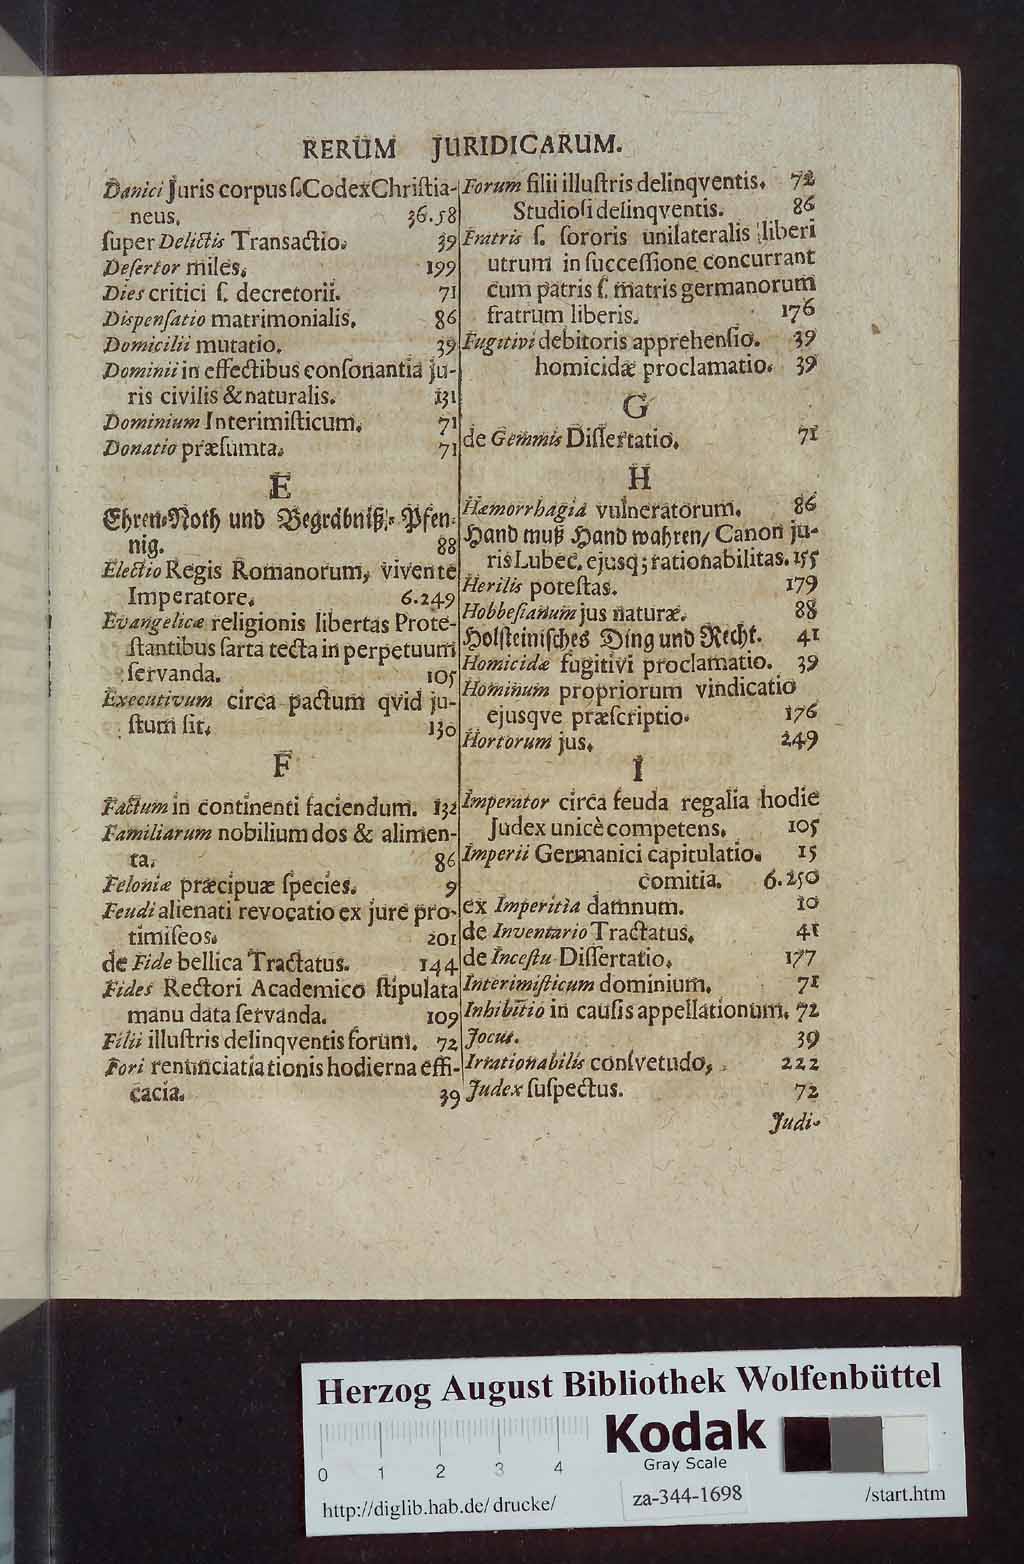 RERUM JURIDICARUM.
Danici Juris corpus ſ. Codex Chriſtia-
neus. 36.58
ſuper Delictis Transactio. 39
Deſertor miles. 199
Dies critici ſ. decretorii. 71
Diſpenſatio matrimonialis. 86
Domicilii mutatio. 39
Dominii in effectibus conſonantia ju-
ris civilis & naturalis. 131
Dominium Interimiſticum. 71
Donatio præſumta. 71
E
Ehren-Noth und Begräbniß-Pfen-
nig. 88
Electio Regis Romanorum, vivente
Imperatore. 6.249
Evangelicæ religionis libertas Prote-
ſtantibus ſarta tecta in perpetuum
ſervanda. 105
Executivum circa pactum qvid ju-
ſtum ſit. 130
F
Factum in continenti faciendum. 132
Familiarum nobilium dos & alimen-
ta. 86
Feloniæ præcipuæ ſpecies. 9
Feudi alienati revocatio ex jure pro-
timiſeos. 201
de Fide bellica Tractatus. 144
Fides Rectori Academico ſtipulata
manu data ſervanda. 109
Filii illuſtris delinqventis forum. 72
Fori renunciatiationis hodierna effi-
cacia. 39
Forum filii illuſtris delinqventis. 72
Studioſi delinqventis. 86
Fratris ſ. ſororis unilateralis liberi
utrum in ſucceſſione concurrant
cum patris ſ. matris germanorum
fratrum liberis. 176
Fugitivi debitoris apprehenſio. 39
homicidæ proclamatio. 39
G
de Gemmis Diſſertatio. 71
H
Hæmorrhagia vulneratorum. 86
Hand muß Hand wahren/ Canon ju-
ris Lubec. ejusq; rationabilitas. 155
Herilis poteſtas. 179
Hobbeſianum jus naturæ. 88
Holſteiniſches Ding und Recht. 41
Homicidæ fugitivi proclamatio. 39
Hominum propriorum vindicatio
ejusqve præſcriptio. 176
Hortorum jus. 249
I
Imperator circa feuda regalia hodie
Judex unicè competens. 105
Imperii Germanici capitulatio. 15
comitia. 6.250
ex Imperitia damnum. 10
de Inventario Tractatus. 41
de Inceſtu Diſſertatio. 177
Interimiſticum dominium. 71
Inhibitio in cauſis appellationum. 72
Jocus. 39
Irrationabilis conſvetudo. 222
Judex ſuſpectus. 72
Judi-
Herzog August Bibliothek Wolfenbüttel
Kodak
Gray Scale
0 1 2 3 4
http://diglib.hab.de/drucke/ za-344-1698 /start.htm